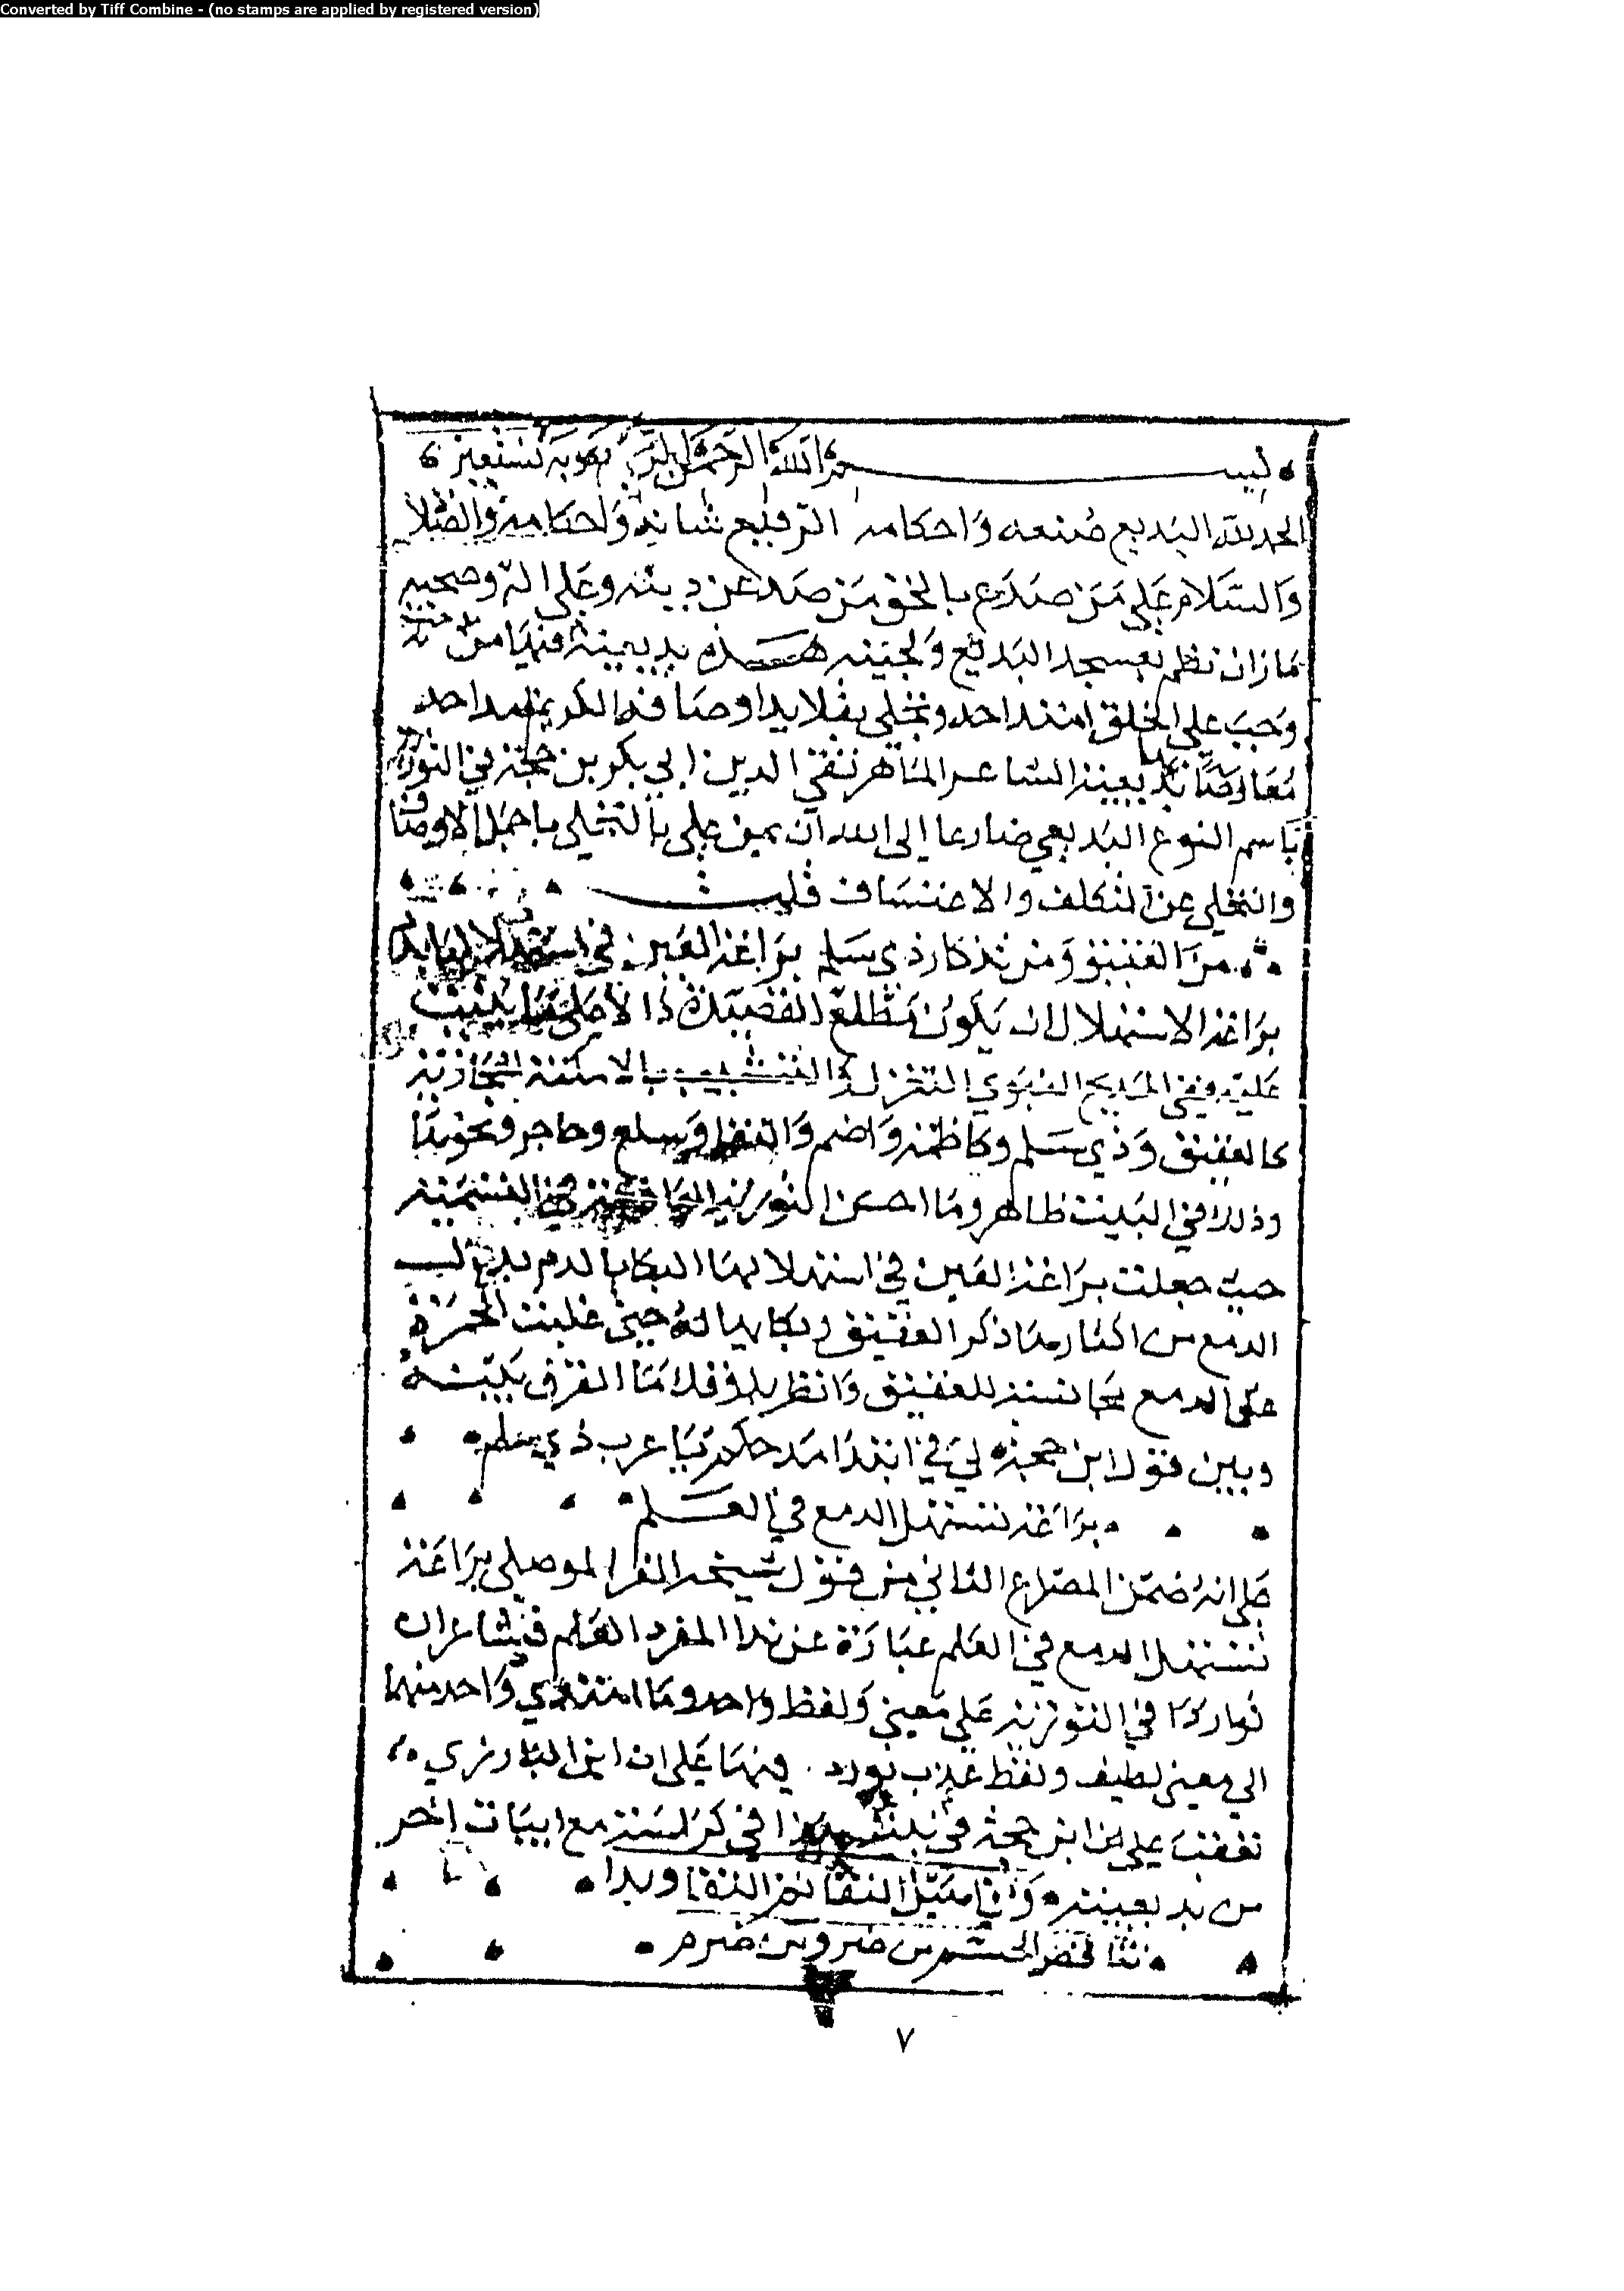 Converted by Tiff Combine - (no stamps are applied by registered version)
بسم الله الرحمن الرحيم وبه نستعين
الحمد لله البديع صنعه واحكامه الرفيع شانه واحكامه والصلاة
والسلام على من صدع بالحق من صد عن دينه وعلى اله وصحبه
ما زان نظم بعسجد البديع ولجينه هذه بديعية فيها من
وجب على الخلق امتداحه وتحلى بقلايد اوصافه الكريمة مداحه
معارضا بها بديعية الشاعر الماهر تقي الدين ابي بكر بن حجة في التورية
باسم النوع البديعي ضارعا الى الله ان يمن علي بالتحلي باجمل الاوصاف
والتخلي عن التكلف والاعتساف قلت
من العقيق ومن تذكار ذي سلم براعة العين في استهلالها بدم
براعة الاستهلال ان يكون مطلع القصيدة دالا على ما بنيت
عليه وفي المديح النبوي التغزل والتشبيب بالامكنة الحجازية
كالعقيق وذي سلم وكاظمة واضم والنقا وسلع وحاجر ونحوها
وذلك في البيت ظاهر وما احسن التورية في التسمية
حيث جعلت براعة العين في استهلالها البكا بالدم بدل
الدمع من اكثارها ذكر العقيق وبكايها له حتى غلبت الحمرة
على الدمع مجانسة للعقيق وانظر بذوقك ما الفرق بينه
وبين قول ابن حجة لي في ابتدا مدحكم يا عرب ذي سلم
براعة تستهل الدمع في العلم
على انه ضمن المصراع الثاني من قول شيخه العز الموصلي براعة
تستهل الدمع في العلم عبارة عن ندا المفرد العلم فشاعران
تواردا في التورية على معنى ولفظ واحد وما اهتدى واحد منهما
الى معنى لطيف ولفظ عذب يورد فيهما على ان ابن البارزي
تعقب على ابن حجة في هذا في كراسة مع ابيات اخر
من بديعيته وفي النقا نحو النقا وبدا
من ضر ومن ضرم
٧